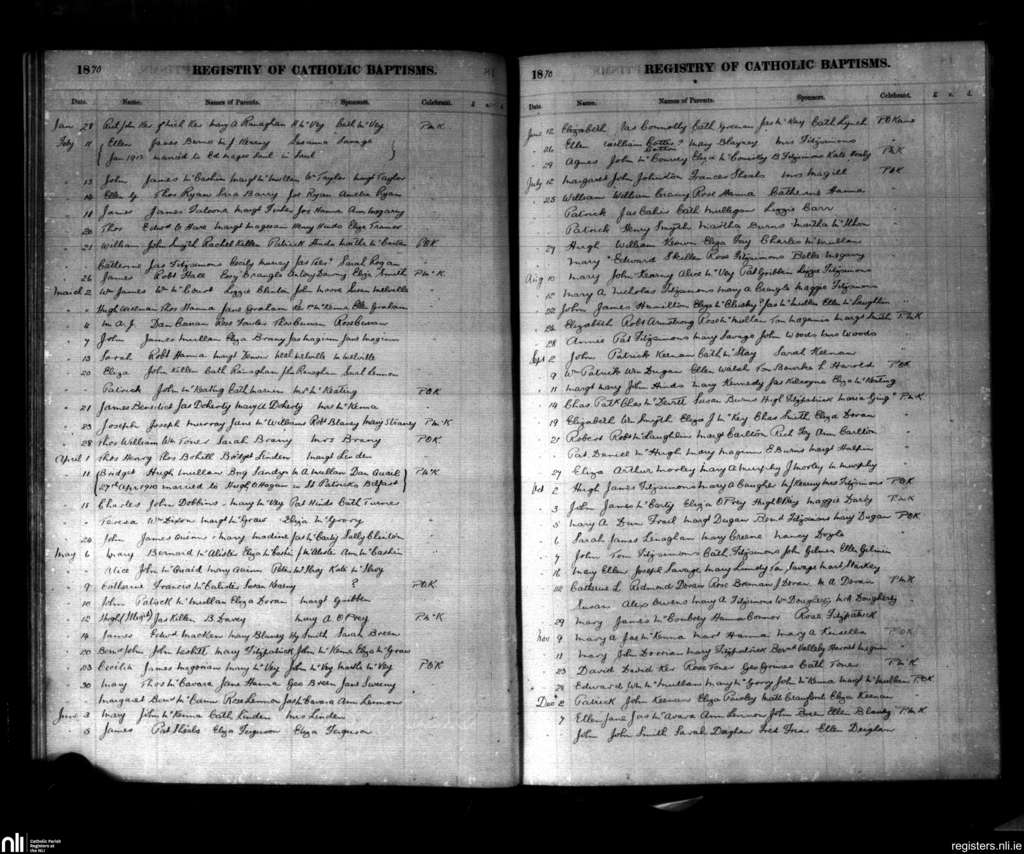 1870 REGISTRY OF CATHOLIC BAPTISMS.
Date. Name. Names of Parents. Sponsors. Celebrant. £ s. d.
Jan 28 John Ker Mich Ker Mary A Ranaghan Cath McVey P McK
Feby 11 Ellen James Burns M J Kearny Susanna Savage
Jan 1915 married to Ed Magee Saul in Saul
" 13 John James McCashin Margt McMullan Wm Taylor Margt Taylor
" 14 Ellen Thos Ryan Sara Barry Jos Ryan Amelia Ryan
" 18 James James Falona Margt Jos Hanna Ann
" 20 Thos Edwd O Hare Margt Magean Mary Hinds Eliza Trainor
" 21 William John Smyth Rachel Killen Patrick Hinds Martha McCartan POK
Catherine Jas Fitzsimons Cecily Murray Jas Sarah Rogan
" 26 James Robt Hall Crangle Antony Davny Eliza Smith P McK
March 2 Wm James Wm McCourt Lizzie Clinton John Moore Susan Melville
" " Hugh William Thos Hanna Jane Graham McKenna Ellen Graham
" 4 M. A. J. Dan Canan Rose Fowler Thos Curran Rose Curran
" 7 John James Mullan Eliza Brany Jas Maginn Jane Maginn
" 13 Sarah Robt Hanna Margt Melville M Melville
" 20 Eliza John Killen Cath Ranaghan Jhn Ranaghan Sarah Lennon
Patrick John McKeating Cath Warren Mrs McKeating POK
" 21 James Benedict Jas Doherty Margt Doherty Mrs McKenna
" 23 Joseph Joseph Murray Jane McWilliams Robt Blaney Mary Straney P McK
" 28 Thos William Wm Toner Sarah Brany Mrs Brany POK
April 1 Thos Henry Thos Bohill Bridget Linden Margt Linden
" 11 Bridget Hugh Mullan Brig Sandys M A Mullan Dan Quail P McK
27th Apr 1910 married to Hugh O'Hagan in St Patricks Belfast
" 15 Charles John Dobbins Mary McVey Pat Hinds Cath Turner
" " Teresa Wm Dixon Margt McGrave Eliza McGrory
" 24 John James Quinn Mary Madine Jas McCarty Sally Clinton
May 6 Mary Bernard McAlister Eliza McCashin McAlister Ann McCashin
" Alice John McQuaid Mary Quinn Peter McIlroy Kate McIlroy
" 9 Catharine Francis McCalister Susan Kearny ? POK
" 10 John Patrick McMullan Eliza Doran Margt Gribben
" 12 Hugh Jas Killen B Davey Mary A O'Prey P McK
" 14 James Edwd Macken Mary Blaney Hy Smith Sarah Breen
" 20 Bernd John John Nesbitt Mary Fitzpatrick John McKenna Eliza McGrave
" 23 Cecilia James Magorrian Mary McVey John McVey Martha McVey POK
" 30 Mary Thos McCavara Jane Hanna Geo Breen Jane Sweeny
Margaret Bernd McCann Rose Lennon Jas McCavara Ann Lennon
June 3 Mary John McKenna Cath Linden Mrs Linden
" 5 James Pat Shiels Eliza Ferguson Eliza Ferguson
1870 REGISTRY OF CATHOLIC BAPTISMS.
Date. Name. Names of Parents. Sponsors. Celebrant. £ s. d.
June 12 Elizabeth Jas Connolly Cath Greenan Jas McKay Cath Lynch POKane
" 26 Ellen William Cotter? Mary Blayney Mrs Fitzsimons
" 29 Agnes John McConvey Eliza McConville B Fitzsimons Kate P McK
July 12 Margaret John Johnston Frances Sheals Mrs Magill POK
" 25 William William Crainy Rose Hanna Catherine Hanna
Patrick Jas Cahir Cath Mulligan Lizzie Carr
Patrick Henry Smyth Martha Burns Martha McIlhon
" 27 Hugh William Keown Eliza Fay Charles McMullan
Mary Edward Skillen Rose Fitzsimons Bella
Aug 10 Mary John Kearny Alice McVey Pat Gribben Lizzie Fitzsimons
" 15 Mary A Nicholas Fitzsimons Mary A Crangle Maggie Fitzsimons
" 22 John James Hamilton Eliza McCluskey? Jas McMullan Ellen McLaughlin
" 26 Elizabeth Robt Armstrong Rose McMullan Tom Magennis Margt Smith P McK
" 28 Annie Pat Fitzsimons Mary Savage John Woods Mrs Woods
Sept 2 John Patrick Keenan Cath McStay Sarah Keenan
" 9 Wm Patrick Wm Dugan Ellen Walsh Tom Bourke L Harold
" 11 Margt Mary John Hinds Mary Kennedy Jas Kilcoyne Eliza McKeating
" 14 Chas Patk Chas McDevitt Susan Burns Hugh Fitzpatrick Maria P McK
" 19 Elizabeth Wm Smyth Eliza J McKey Chas Smith Eliza Doran
" 21 Robert Robt McLaughlin Margt Carlton Rich Ann Carlton
Pat Daniel McHugh Mary Maginn E Burns Margt Halpin
" 27 Eliza Arthur Morley Mary A Murphy J Morley M Murphy
Oct 2 Hugh James Fitzsimons Mary A Caughey Kearny Mrs Fitzsimons POK
" 3 John James McCarty Eliza O'Prey Hugh O'Prey Maggie Darby P McK
" 5 Mary A Dan Trail Margt Dugan Bernd Fitzsimons Mary Dugan POK
" 6 Sarah James Lenaghan Mary Greene Nancy Doyle
" 7 John Tom Fitzsimons Cath Fitzsimons John Gilmer Ellen Gilmin
" 16 Mary Ellen Joseph Savage Mary Lundy Tom Savage Mart Starkey
" 22 Catherine L Redmond Doran Rose Brennan J Doran M A Doran P McK
Susan Alex Owens Mary A Fitzsimons Wm Dougherty Mrs Dougherty
" 29 Mary James McConvey Hanna Connor Rose Fitzpatrick
Nov 9 Mary A Jas McKenna Mart Hanna Mary A Kinsella POK
" 11 Mary John Dorrian Mary Fitzpatrick Bernd Vallely Harriet Megrin
" 23 David David Ker Rose Toner Geo Grimes Cath Toner P McK
" 26 Edward Wm McMullan Mary McGrory John McKenna Margt McMullan POK
Dec 2 Patrick John Keenan Eliza Paisley Matt Crawford Eliza Keenan
" 7 Ellen Jane Jas McAvara Ann Lennon John Breen Ellen Blaney P McK
John John Smith Sarah Deighan Fred Frar Ellen Deighan
nli Catholic Parish Registers at the NLI
registers.nli.ie